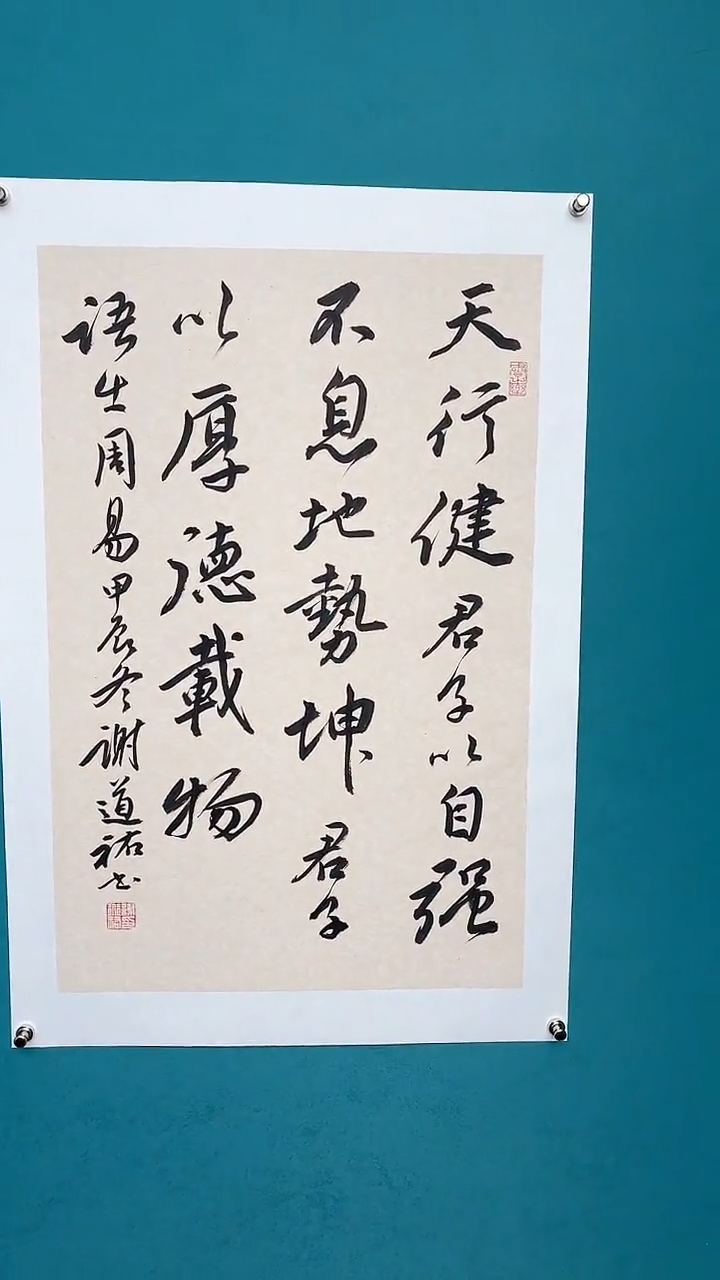 天行健君子以自强
不息地勢坤君子
以厚德載物
语出周易甲辰冬谢道祐书